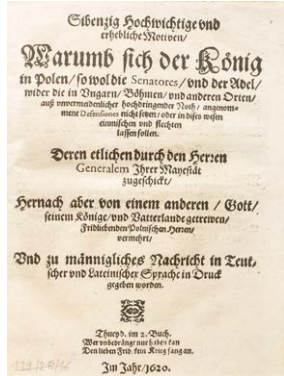 Sibenzig Hochwichtige vnd
erhebliche Motiven/
Warumb sich der König
in Polen/ so wol die Senatores/ vnd der Adel/
wider die in Vngarn/ Böhmen/ vnd anderen Orten/
auß vnvermeidenlicher hochdringender Noth/ angenom-
mene Defensiones nicht setzen/ oder in dises wesen
einmischen vnd flechten
lassen sollen.
Deren etlichen durch den Herren
Generalem Ihrer Mayestät
zugeschickt/
Hernach aber von einem anderen/ Gott/
seinem Könige/ vnd Vatterlande getrewen/
Fridliebenden Polnischen Herren/
vermehrt/
Vnd zu männigliches Nachricht in Teut-
scher vnd Lateinischer Sprache in Druck
gegeben worden.
Thucyd. im 2. Buch.
Wer vnbedrängt nur haben kan
Den lieben Frid, kein Krieg fang an.
Im Jahr/ 1620.